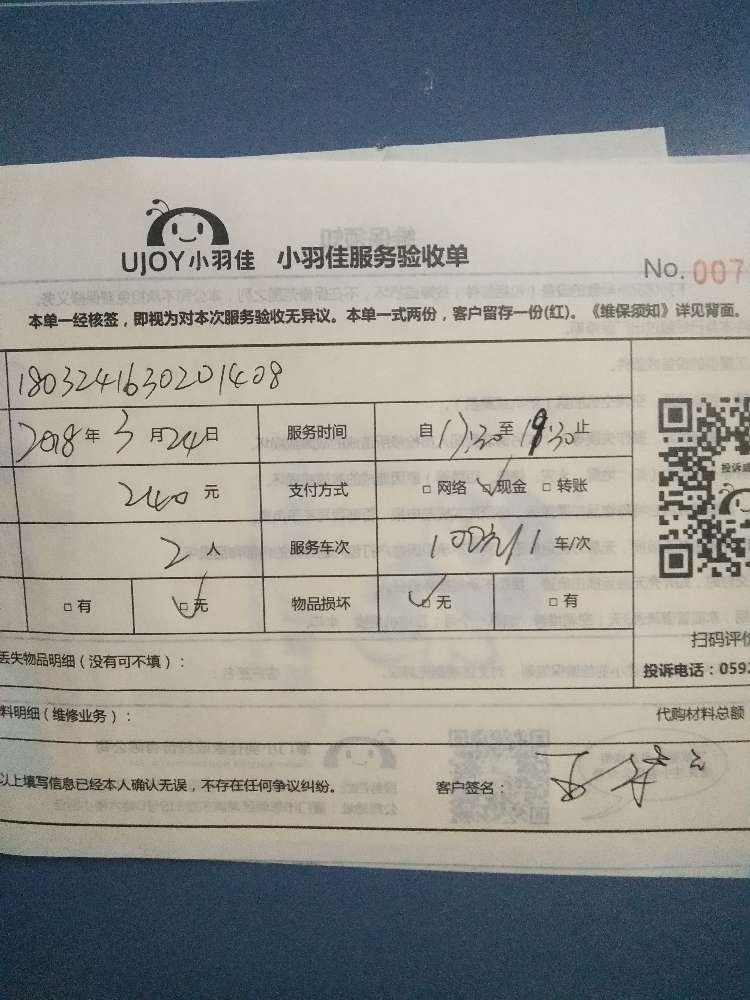 UJOY小羽佳 小羽佳服务验收单
No. 007
本单一经核签，即视为对本次服务验收无异议。本单一式两份，客户留存一份(红)。《维保须知》详见背面。
1803241630201408
2018年3月24日 服务时间 自17:30至19:30止
240元 支付方式 □网络 □现金 □转账
2人 服务车次 100元/1车/次
□有 □无 物品损坏 □无 □有
投诉
扫码评价
丢失物品明细（没有可不填）：
投诉电话：0592
料明细（维修业务）：
代购材料总额
以上填写信息已经本人确认无误，不存在任何争议纠纷。
客户签名：